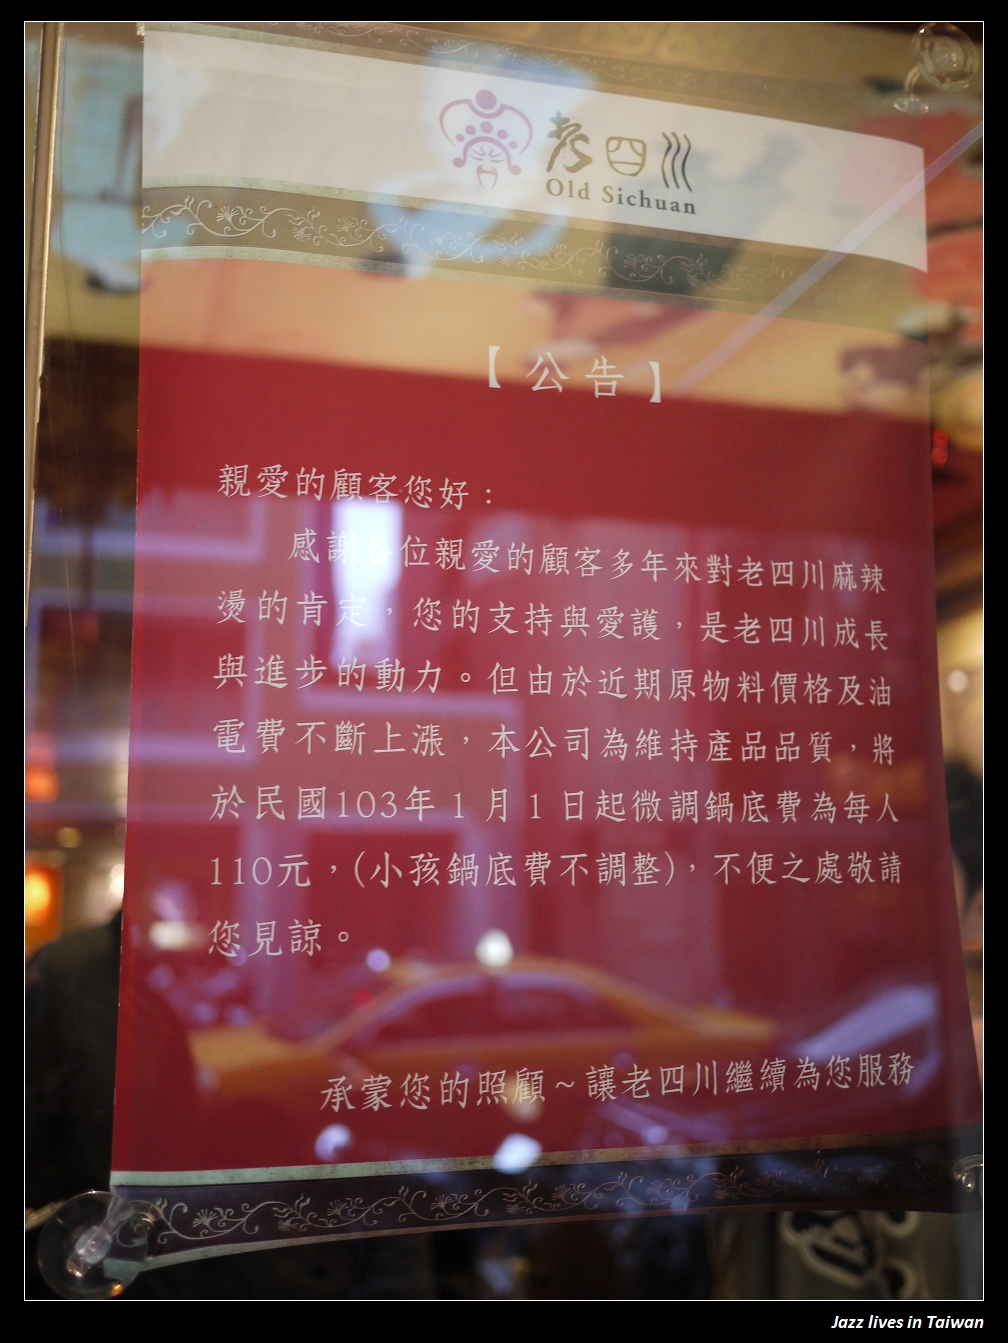 老四川
Old Sichuan
【公告】
親愛的顧客您好：
感謝各位親愛的顧客多年來對老四川麻辣
燙的肯定，您的支持與愛護，是老四川成長
與進步的動力。但由於近期原物料價格及油
電費不斷上漲，本公司為維持產品品質，將
於民國103年1月1日起微調鍋底費為每人
110元，(小孩鍋底費不調整)，不便之處敬請
您見諒。
承蒙您的照顧～讓老四川繼續為您服務
Jazz lives in Taiwan